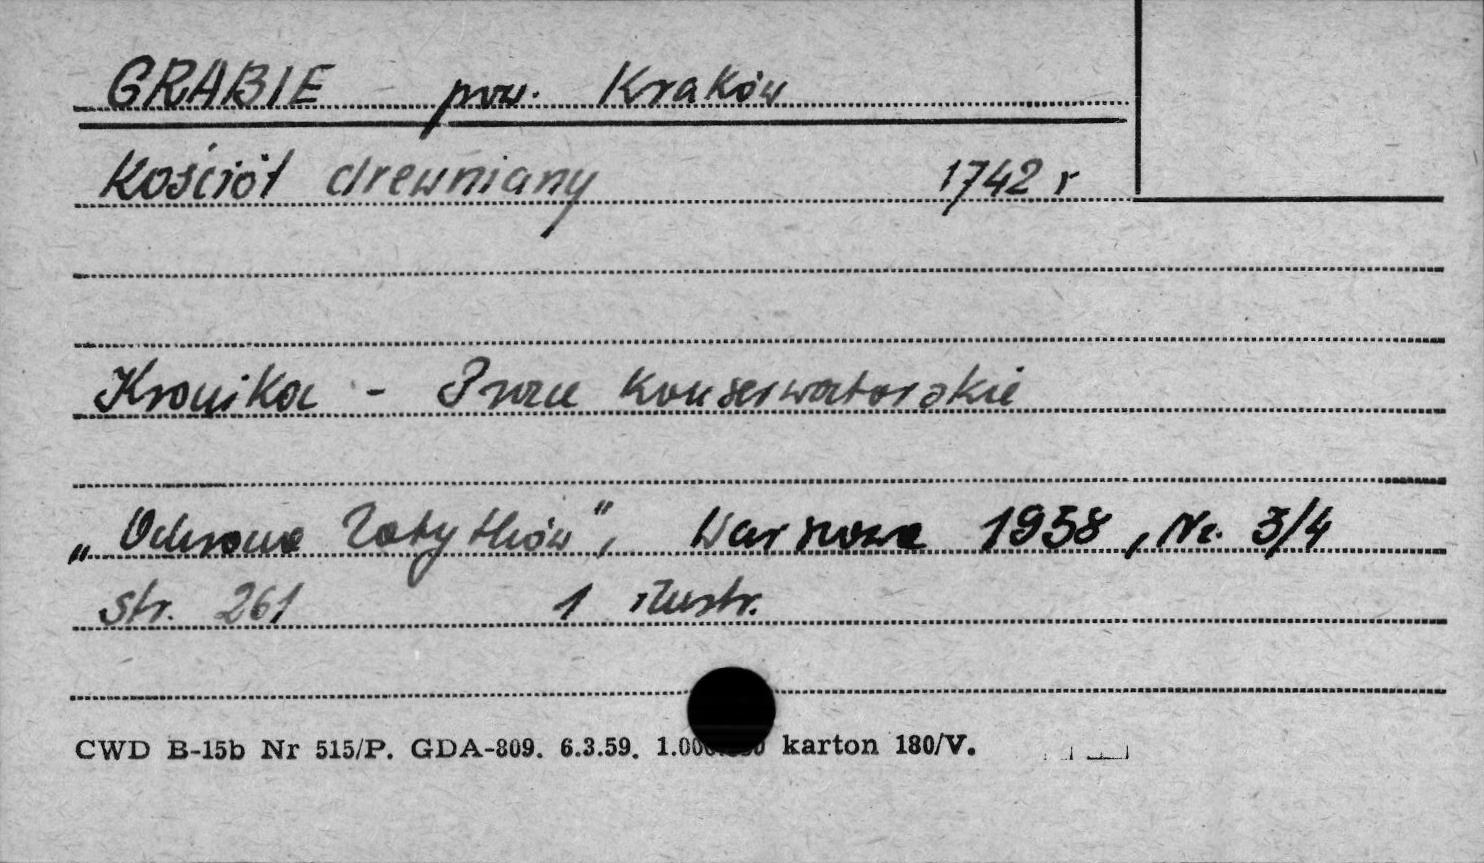 GRABIE pow. Kraków
Kościół drewniany 1742 r
Kronika - Prace Konserwatorskie
„Ochrona Zabytków", Warszawa 1958, Nr. 3/4
str. 261 1 ilustr.
CWD B-15b Nr 515/P. GDA-809. 6.3.59. karton 180/V.